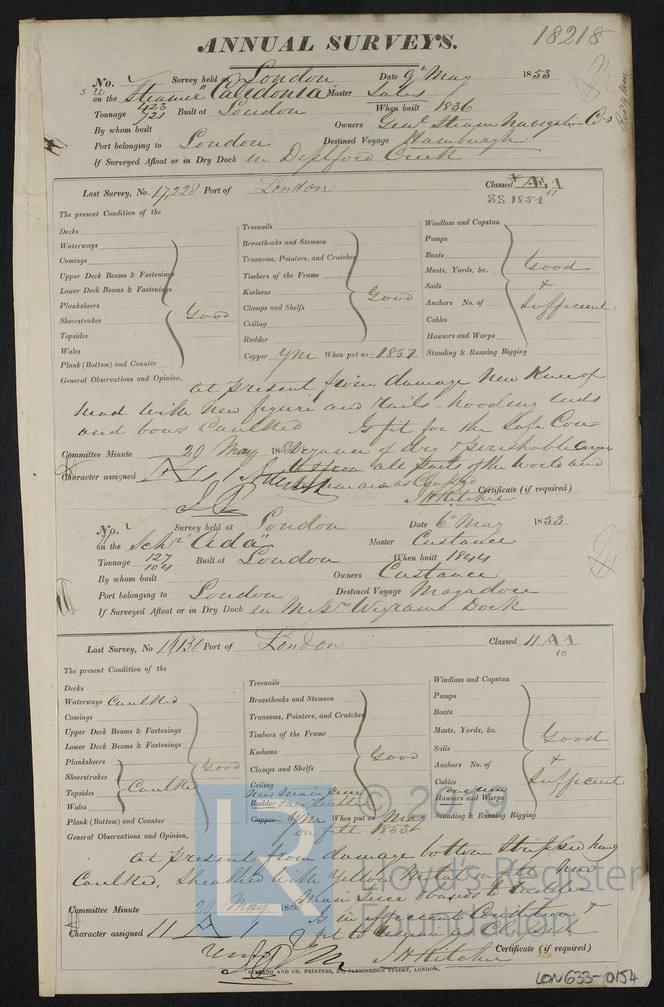 ANNUAL SURVEYS.
18218
No. Survey held at London Date 9th May 1853
on the Steamer "Caledonia" Master
Tonnage 423 721 Built at London When built 1836
By whom built Owners Genl Steam Navigation Co
Port belonging to London Destined Voyage Hamburgh
If Surveyed Afloat or in Dry Dock in Deptford Creek
Last Survey, No. 17,228 Port of London Classed Æ 1
SS 1851
The present Condition of the
Decks
Waterways
Comings
Upper Deck Beams & Fastenings
Lower Deck Beams & Fastenings
Planksheers
Sheerstrakes
Topsides
Wales
Plank (Bottom) and Counter
Good
Treenails
Breasthooks and Stemson
Transoms, Pointers, and Crutches
Timbers of the Frame
Keelsons
Clamps and Shelfs
Ceiling
Rudder
Copper YM When put on 1851
Good
Windlass and Capstan
Pumps
Boats
Masts, Yards, &c.
Sails
Anchors No. of
Cables
Hawsers and Warps
Standing & Running Rigging
Good
&
Sufficient
General Observations and Opinion, at present from damage New Knee of
head with new figure and rails - hooding ends
and bows Caulked Is fit for the safe Con
Committee Minute 20 May 185 veyance of dry & perishable Cargo
to & from all parts of the World and
Character assigned
J H Ritchie Certificate (if required)
No. Survey held at London Date 6th May 1853
on the Schr "Ada" Master Custance
Tonnage 127 104 Built at London When built 1844
By whom built Owners Custance
Port belonging to London Destined Voyage Mogadore
If Surveyed Afloat or in Dry Dock in Messrs Wigrams Dock
Last Survey, No Port of London Classed 11 A 1
50
The present Condition of the
Decks
Waterways Caulked
Comings
Upper Deck Beams & Fastenings
Lower Deck Beams & Fastenings
Planksheers
Sheerstrakes
Topsides
Wales
Plank (Bottom) and Counter
Caulked
Good
Treenails
Breasthooks and Stemson
Transoms, Pointers, and Crutches
Timbers of the Frame
Keelsons
Clamps and Shelfs
Ceiling
New Main piece
Rudder
Copper YM When put on May
on felt 1853
Good
Windlass and Capstan
Pumps
Boats
Masts, Yards, &c.
Sails
Anchors No. of
Cables one new
Hawsers and Warps
Standing & Running Rigging
Good
&
Sufficient
General Observations and Opinion,
at present from damage bottom Stripped
Caulked, Sheathed with Yellow Metal on felt New
Main piece to rudder
Committee Minute 20 May 185 Is in efficient Condition &
Character assigned 11 A 1 fit to
J H Ritchie Certificate (if required)
AND CO. PRINTERS, 67, FARRINGDON STREET, LONDON.
LON633-0154
© 2019
Lloyd's Register
Foundation
LR